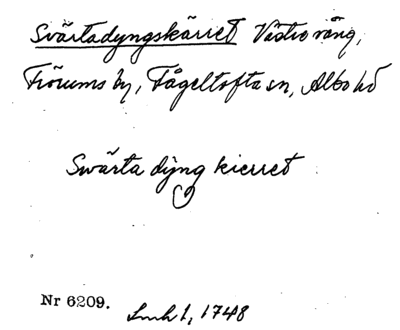 Svärtadyngskärret Västra vång,
Frörums by, Fågeltofta sn, Albo hd
Swärta dÿng kierret
Nr 6209. Lmh 1, 1748